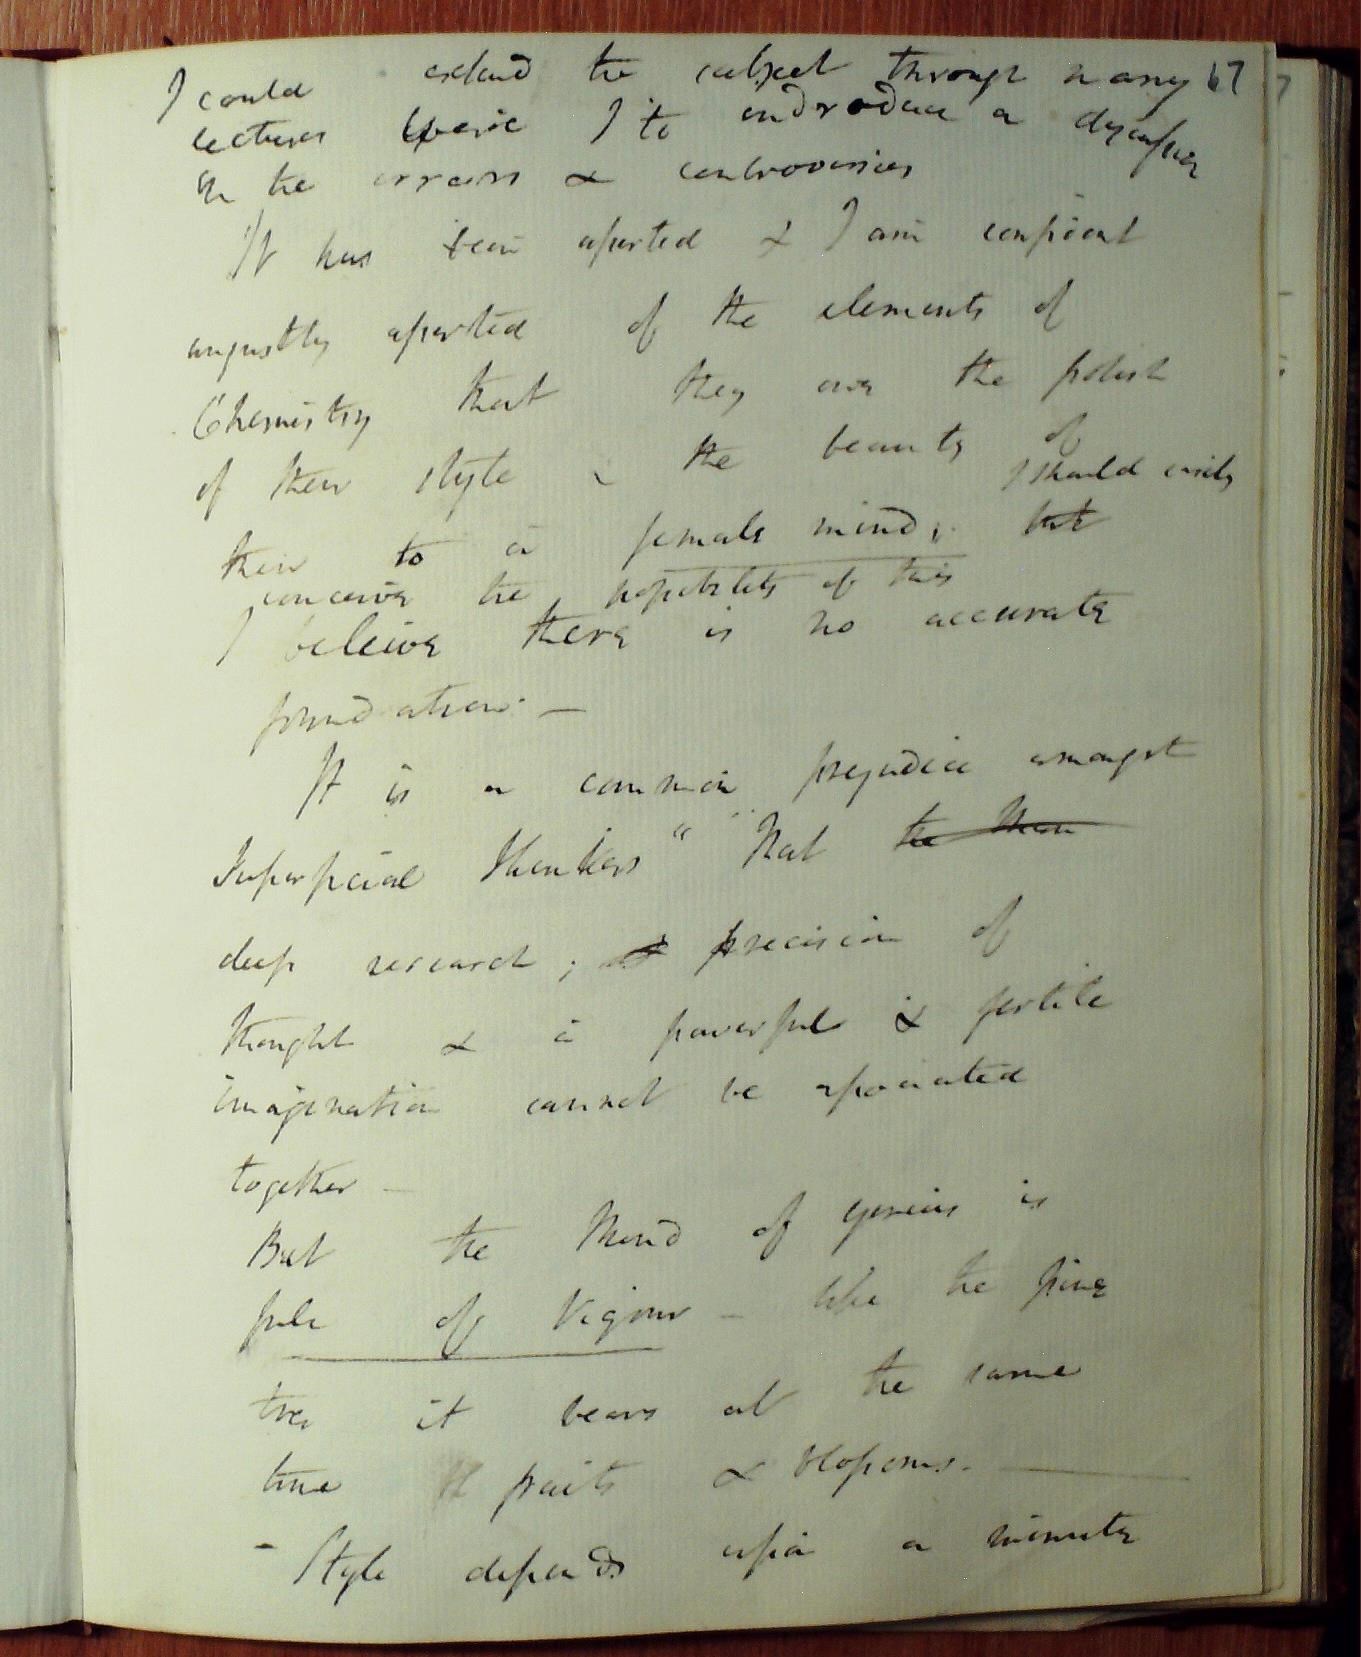 I could extend the subject through many 67
lectures were I to introduce a
on the errors & controversies
It has been asserted & I am confident
unjustly asserted of the elements of
Chemistry that they owe the polish
of their style & the beauty of
I should easily
their to a female mind, but
conceive the possibility of this
I beleive there is no accurate
foundation. —
It is a common prejudice amongst
superficial thinkers " that the
deep research; precision of
thought & a powerful & fertile
imagination cannot be associated
together —
But the Mind of genius is
full of Vigour - like the pine
tree it bears at the same
time fruits & blossoms. —
- Style depends upon a minute